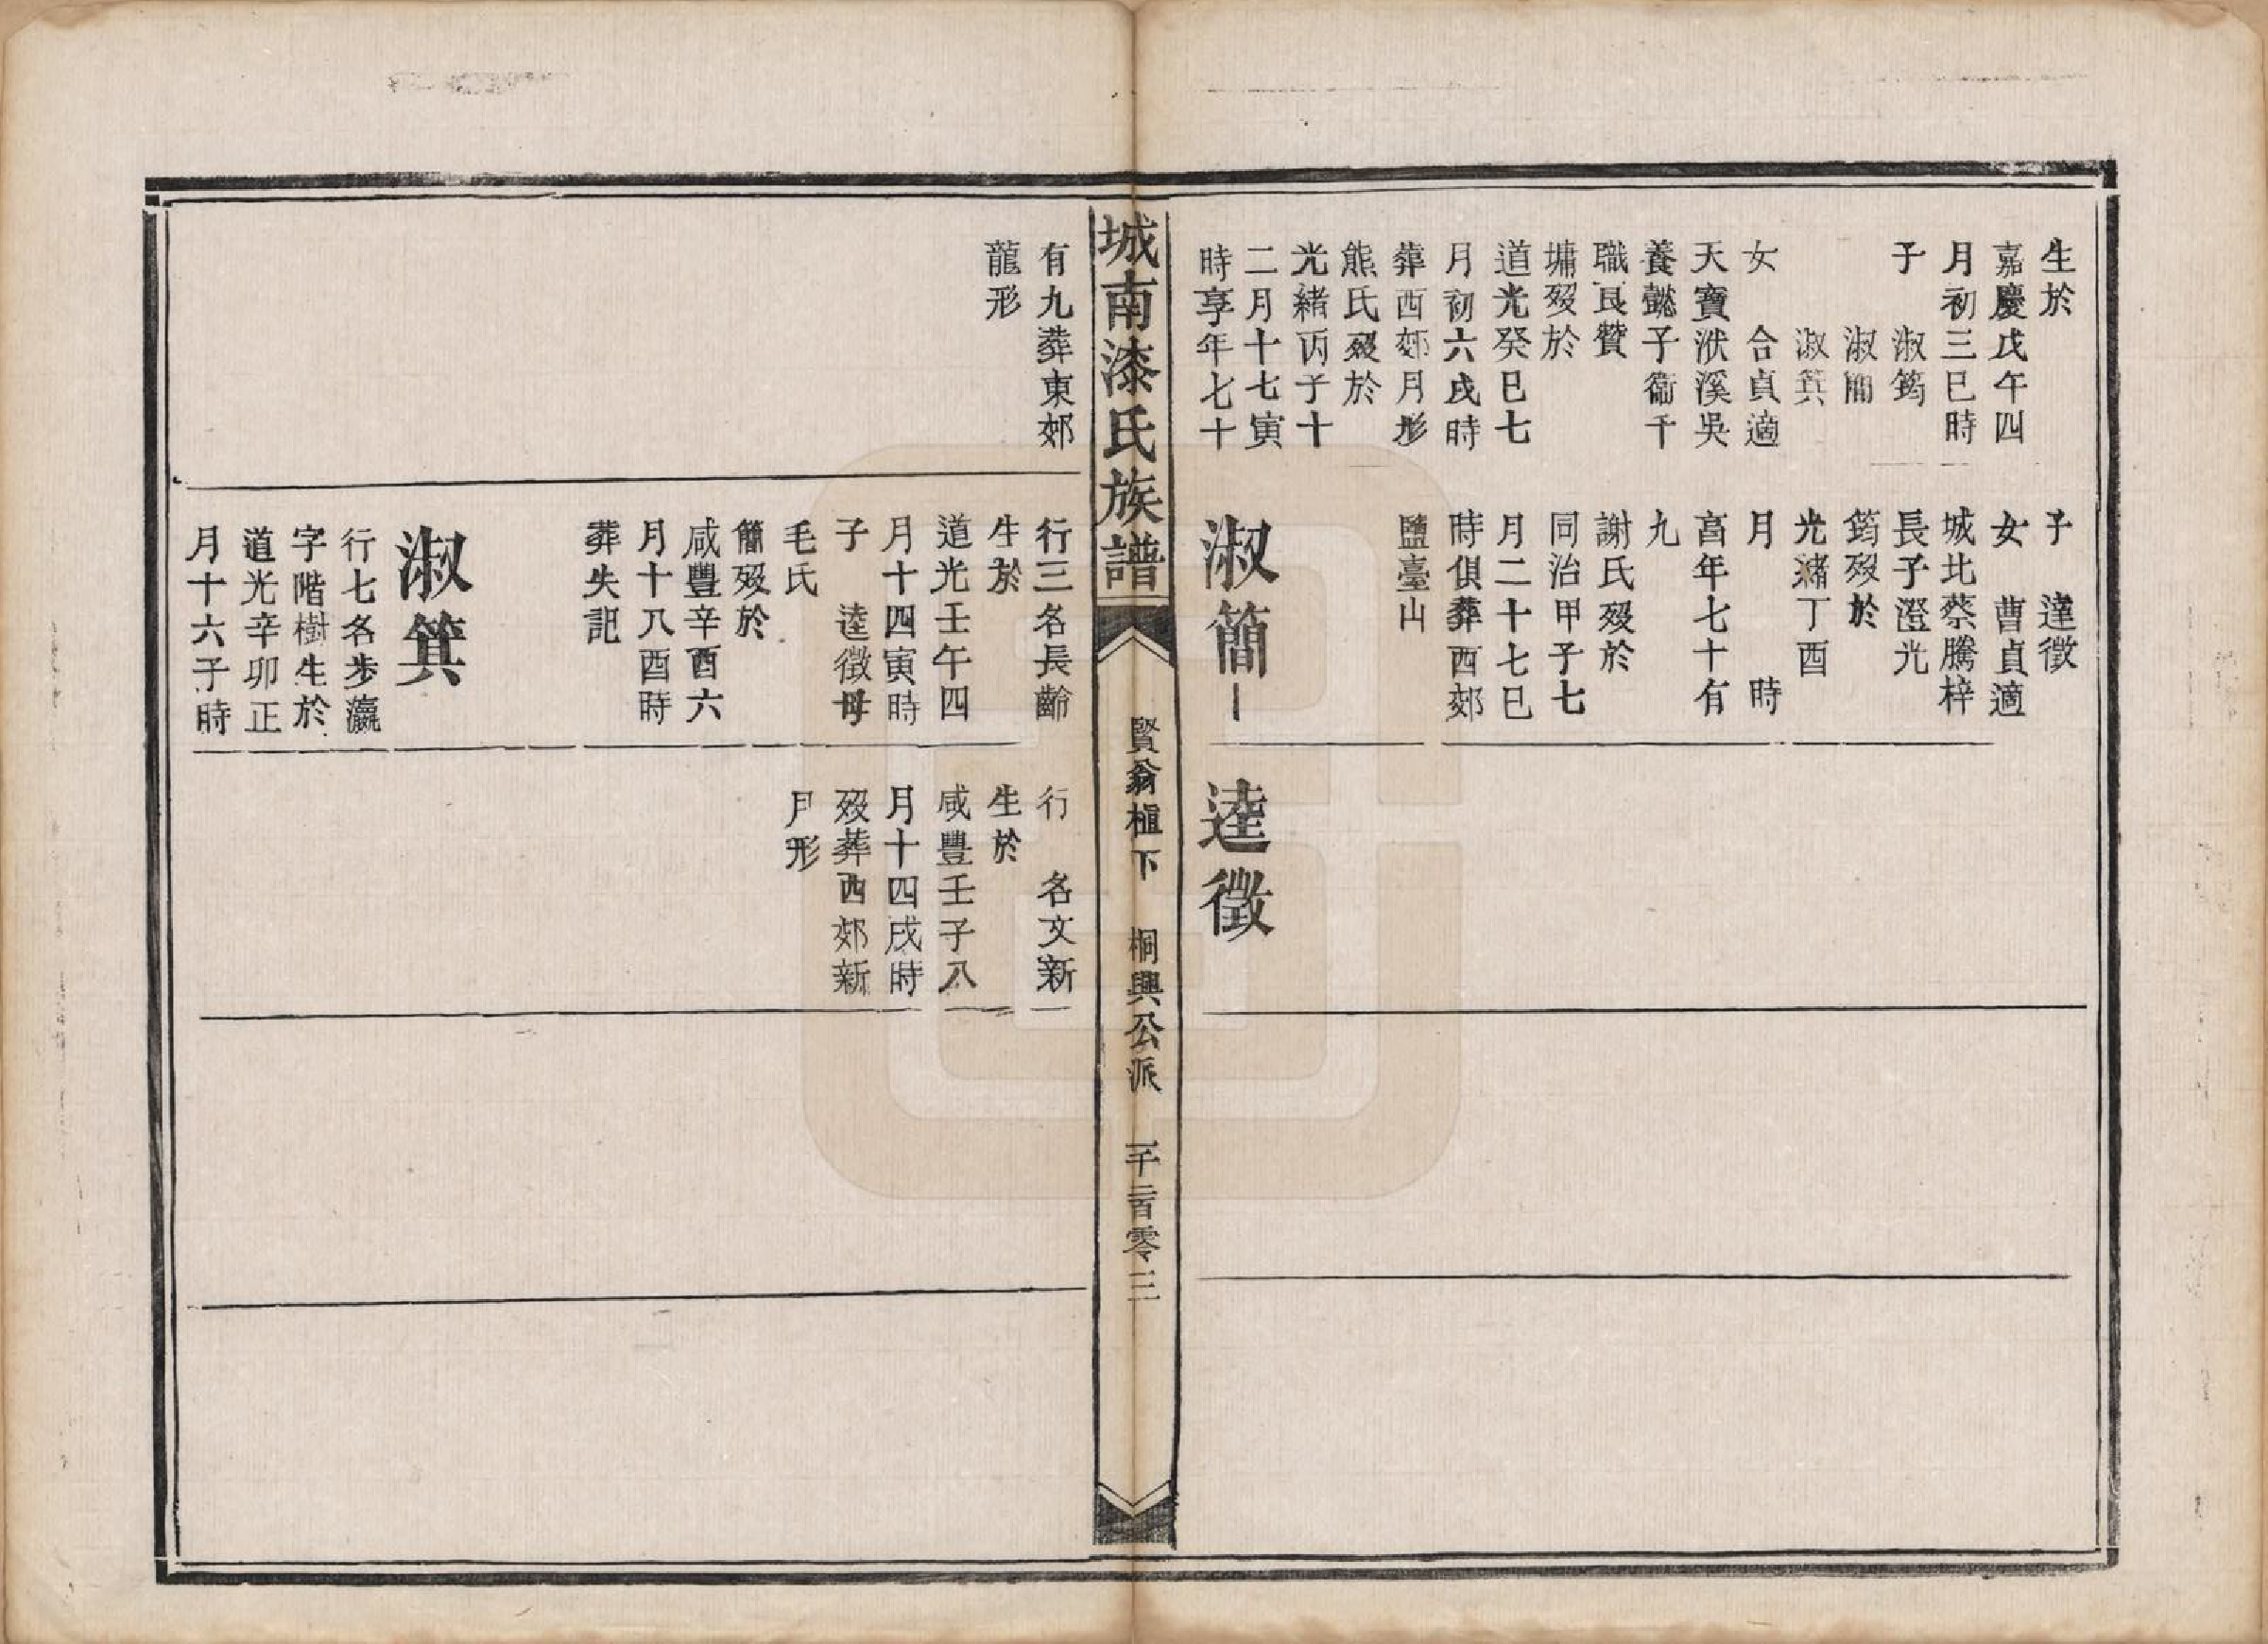 生於
嘉慶戊午四
月初三巳時
子　淑筠
淑簡
淑箕
女　合貞適
天寶洑溪吳
養懿子衞千
職艮贊
墉歿於
道光癸巳七
月初六戌時
葬西郊月形
熊氏歿於
光緒丙子十
二月十七寅
時享年七十
子　達徵
女　曹貞適
城北蔡騰梓
長子澄光
筠歿於
光緒丁酉
月　　時
高年七十有
九
謝氏歿於
同治甲子七
月二十七巳
時俱葬西郊
鹽臺山
淑簡
逵徵
城南漆氏族譜
賢翁植下　桐興公派　一千二百零三
有九葬東郊
龍形
行三名長齡
生於
道光壬午四
月十四寅時
子　逵徵母
毛氏
簡歿於
咸豐辛酉六
月十八酉時
葬失記
淑箕
行七名步瀛
字階樹生於
道光辛卯正
月十六子時
行　名文新
生於
咸豐壬子八
月十四戌時
歿葬西郊新
尸形